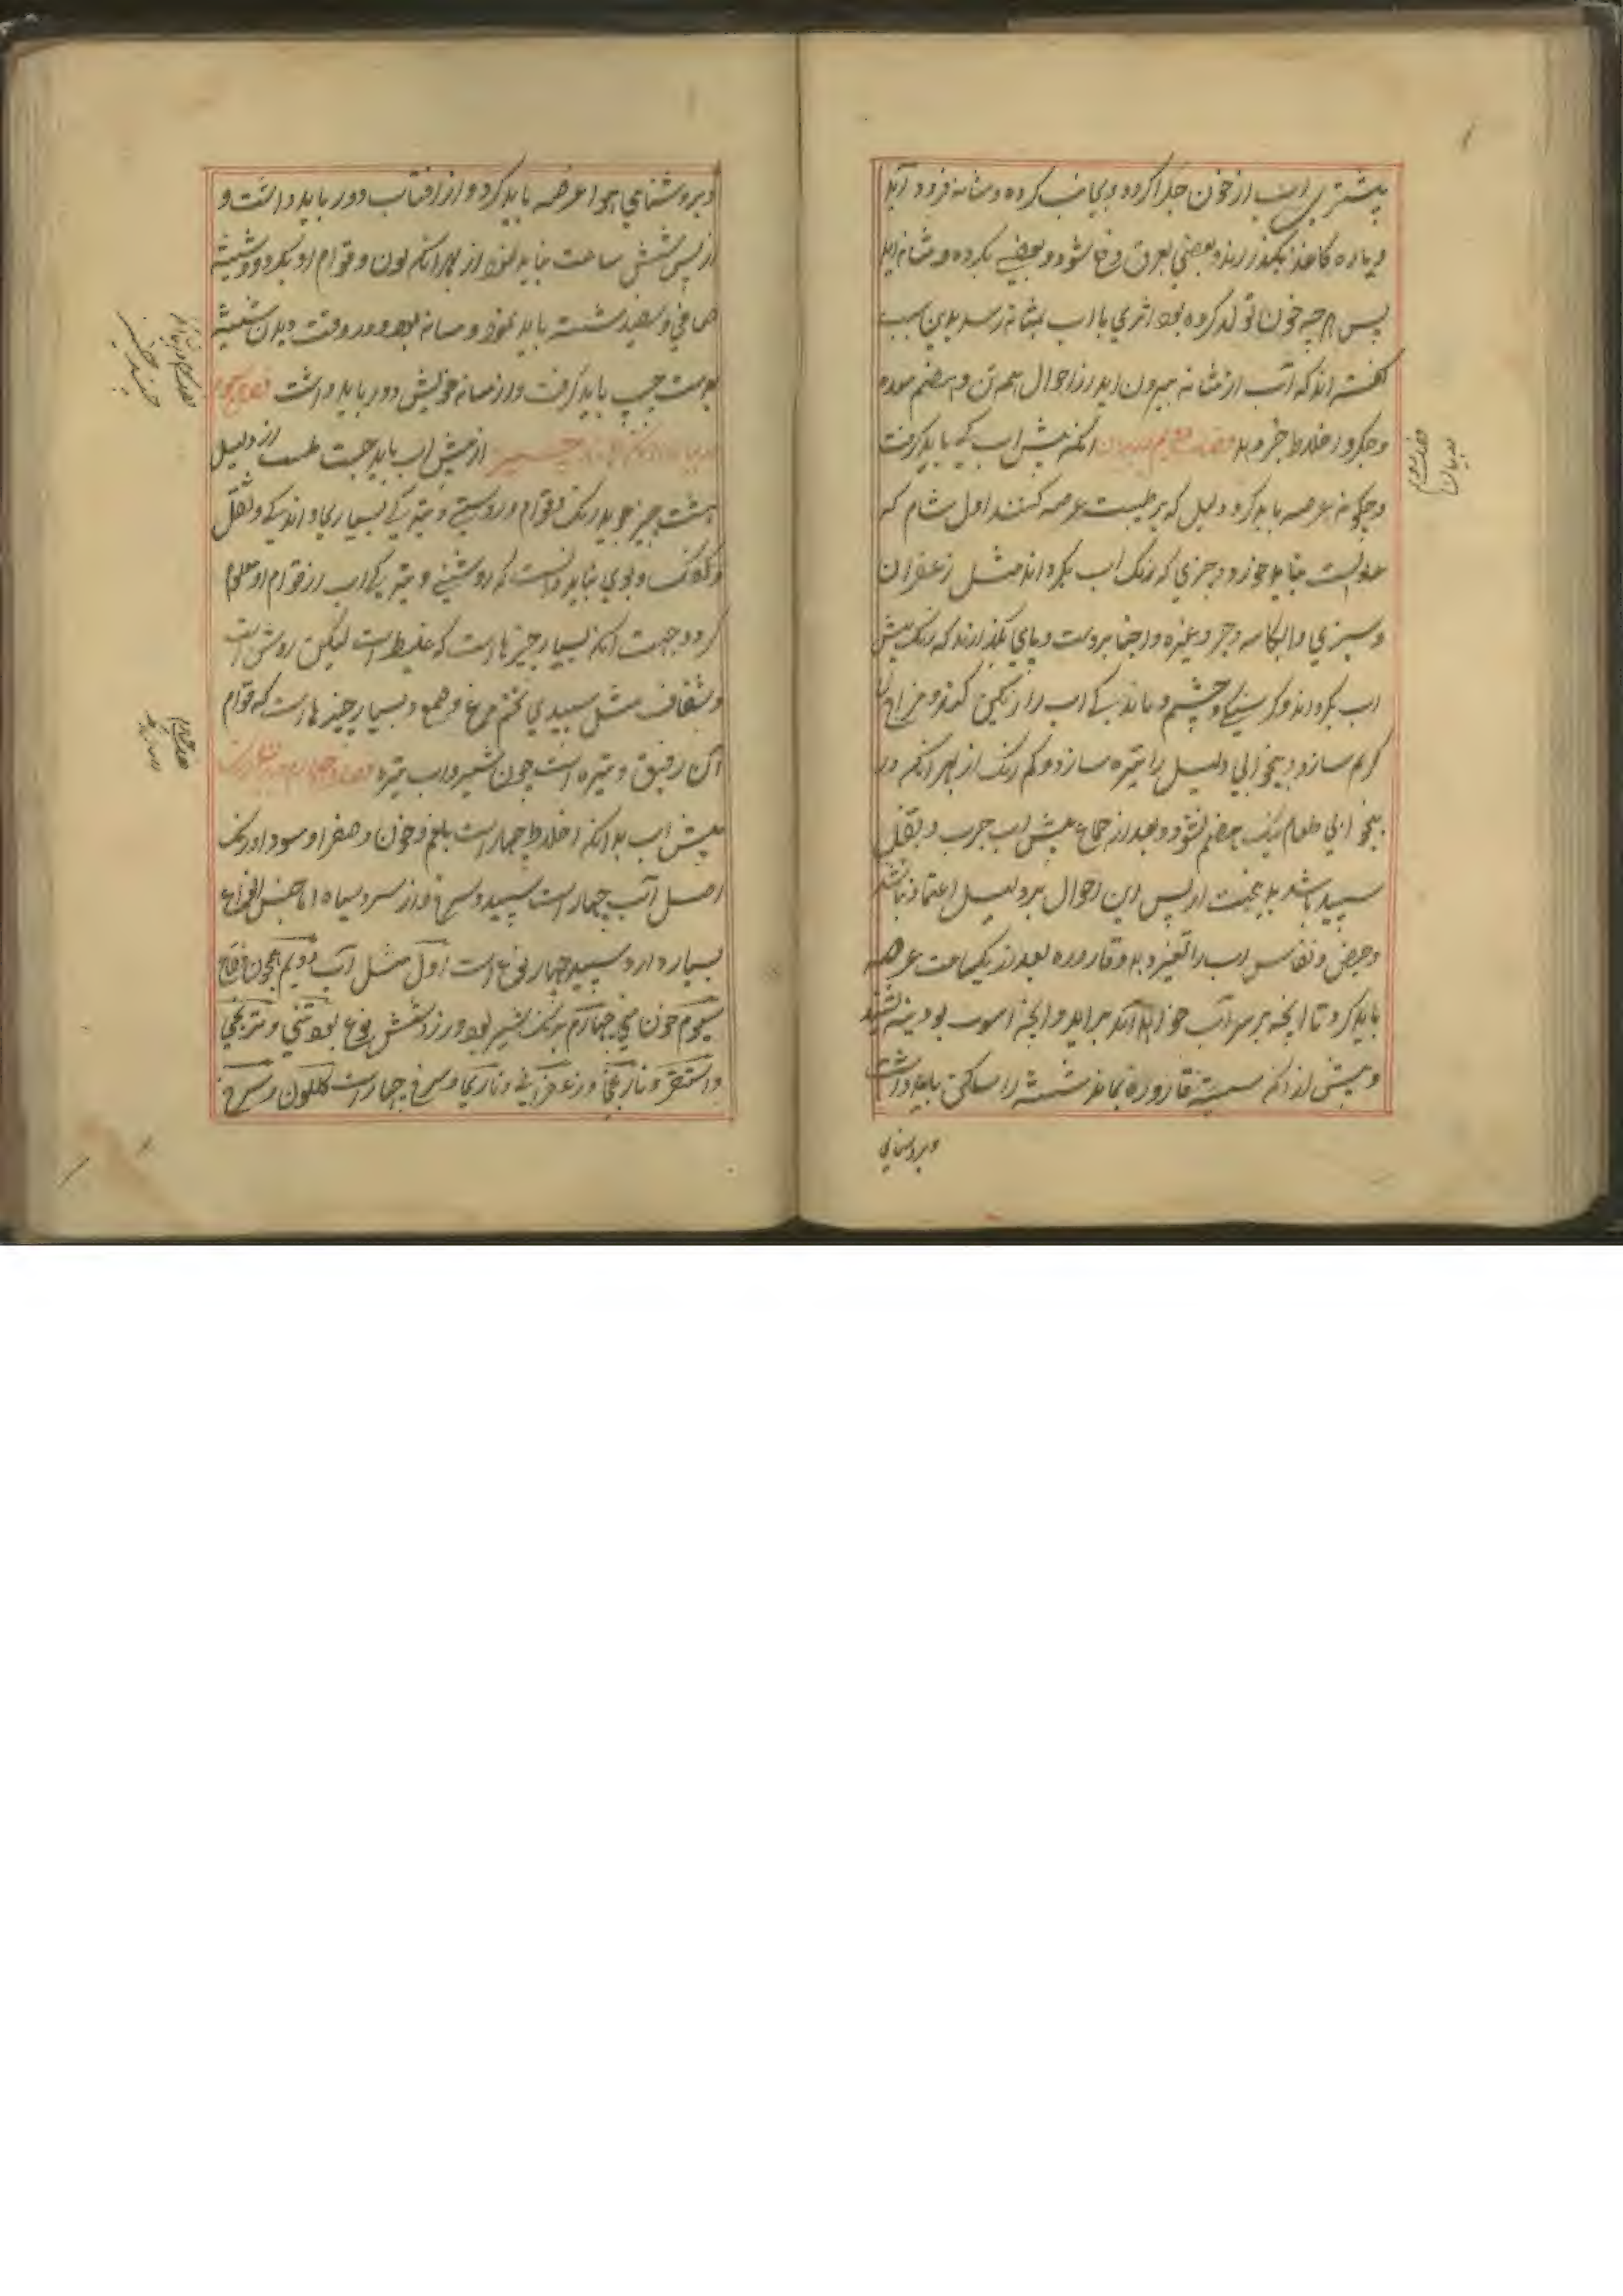 پیشتری اب از خون جدا کردد و بجانب کرده و مثانه فرود آید
و پاره کاغذ بکذرد و بعضی بعرق دفع شود و بعضی بکرده و مثانه اید
پس هرچه خون تولد کرده بود اثری با اب بمثانه رسد بدین سبب
کفته اند که آب از مثانه بیرون اید از احوال همه تن و هضم معده
و جکر و اخلاط خبر دهد انکه پیش اب کی باید کرفت
و چکونه عرضه باید کرد و دلیل که بر طبیب عرضه کنند اول شام که
نباید خورد و چیزی که رنک اب بکرداند مثل زعفران
و سبزی و ابکامه و جز و غیره و حنا بر دست و پای نکذارند که رنک پیش
اب بکرداند و کرسنکی و خشم و ماندکی اب را رنکین کند و مزاج را
کرم سازد و بیخوابی دلیل را تیره سازد و کم رنک از بهر انکه در
بیخوابی طعام نیک هضم نشود و بعد از جماع پیش اب چرب و ثقل
سپید باشد از پس این احوال بر دلیل اعتماد نباشد
و حیض و نفاس اب را تغیر دهد و قاروره بعد از یکساعت عرضه
باید کرد تا انچه بر سر آب خواهد آمد براید و انچه رسوب بود بنشیند
و پیش از انکه قاروره بماند شیشه را ساکن باید داشت
و بروشنایی
و بروشنایی هوا عرضه باید کرد و از افتاب دور باید داشت و
از پس شش ساعت نباید نمود از بهر انکه لون و قوام او بکردد و شیشه
صافی و سفید شسته باید نمود و میانه بود و در وقت دیدن شیشه
بدست چپ باید کرفت و از میانه خویش دور باید داشت
از پیش اب باید جست طبیب از دلیل
هشت چیز جوید رنک و قوام و روشنی و تیرکی بسیاری و اندکی و ثقل
و کفک و بوی بباید دانست که روشنی و تیرکی اب از قوام او معلوم
کردد جهت انکه بسیار چیزها است که غلیظ است لیکن روشن است
و شفاف مثل سپیدی تخم مرغ و صمغ و بسیار چیزها است که قوام
آن رقیق و تیره است چون شیر و اب تیره
پیش اب بدانکه اخلاط چهار است بلغم و خون و صفرا و سودا و رنک
اصل آب چهار است سپید و سرخ و زرد و سیاه اما جنس انواع
بسیار دارد سپید چهار نوع است اول مثل آب دویم همچون فقاع
سیوم چون یخ چهارم برنک شیر بود و زرد شش نوع بود تبنی و ترنجی
و اشقر و نارنجی و زعفرانی و ناری و سرخ چهار است کلکون و سرخ